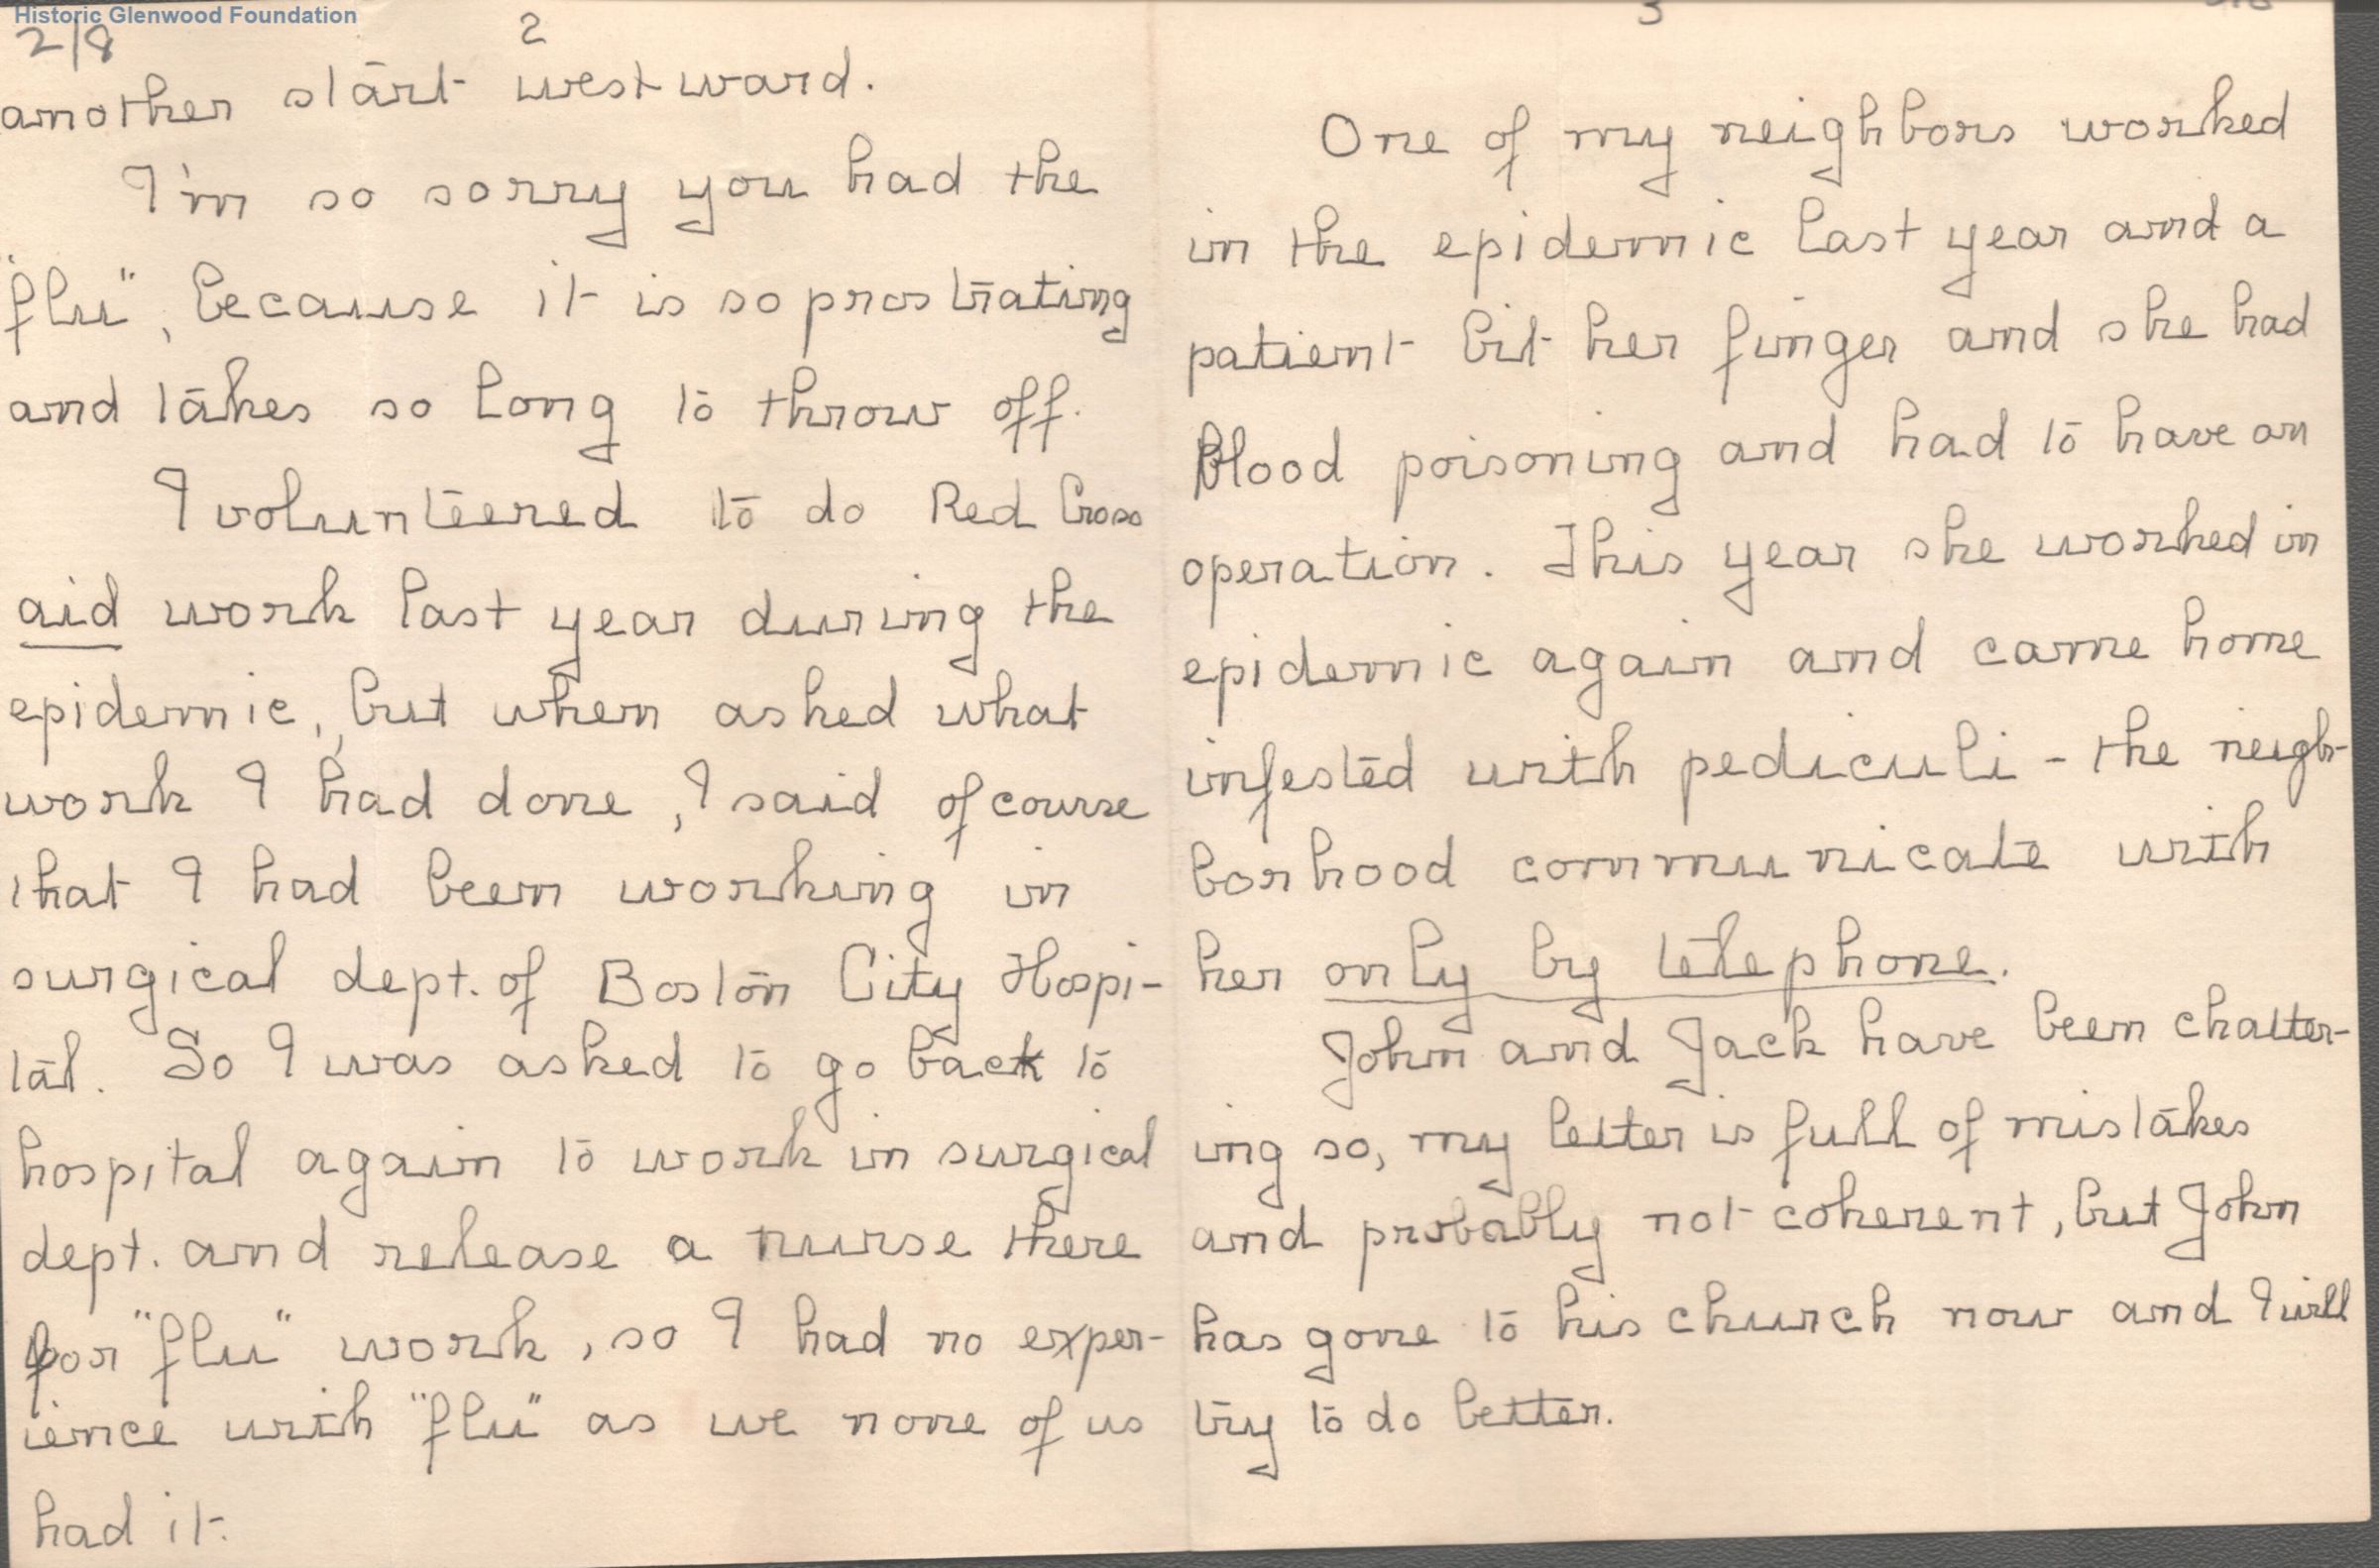 Historic Glenwood Foundation
2/8
2
another start westward.
I'm so sorry you had the
"flu", because it is so prostrating
and takes so long to throw off.
I volunteered to do Red Cross
aid work last year during the
epidemic, but when asked what
work I had done, I said of course
that I had been working in
surgical dept. of Boston City Hospi-
tal. So I was asked to go back to
hospital again to work in surgical
dept. and release a nurse there
for "flu" work, so I had no exper-
ience with "flu" as we none of us
had it.
3
One of my neighbors worked
in the epidemic last year and a
patient bit her finger and she had
Blood poisoning and had to have an
operation. This year she worked in
epidemic again and came home
infested with pediculi - the neigh-
borhood communicate with
her only by telephone.
John and Jack have been chatter-
ing so, my letter is full of mistakes
and probably not coherent, but John
has gone to his church now and I will
try to do better.